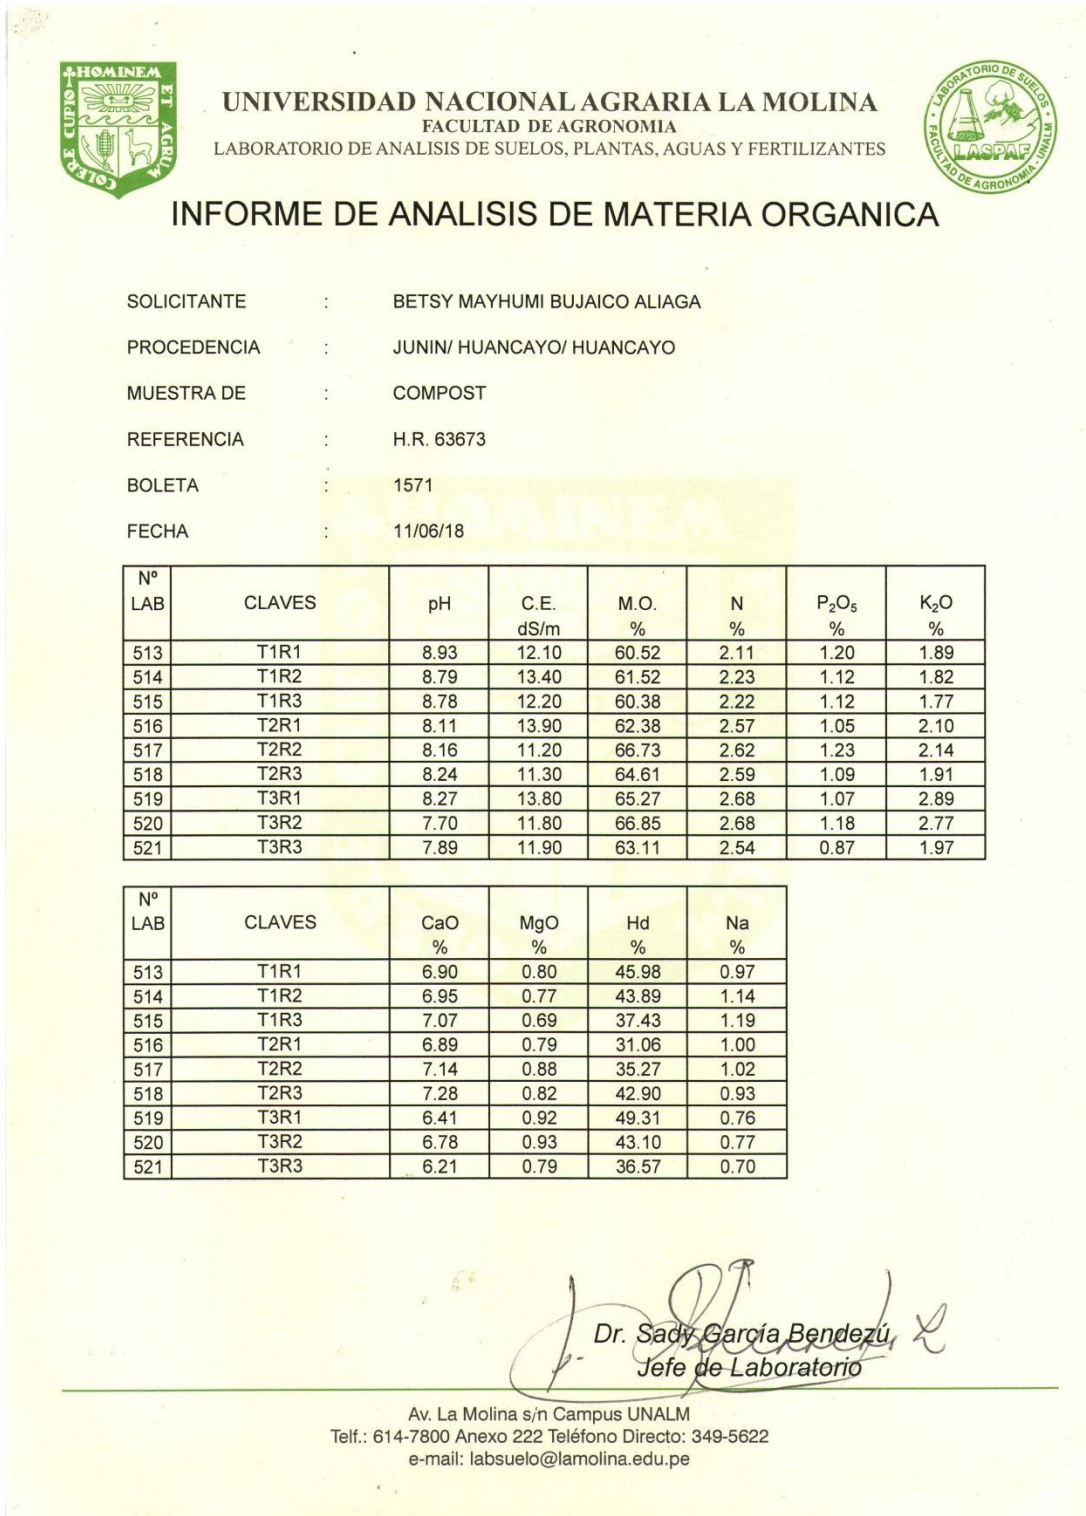 HOMINEM ET AGRUM COLERE CUPIO
UNIVERSIDAD NACIONAL AGRARIA LA MOLINA
FACULTAD DE AGRONOMIA
LABORATORIO DE ANALISIS DE SUELOS, PLANTAS, AGUAS Y FERTILIZANTES
LABORATORIO DE SUELOS
LASPAF
FACULTAD DE AGRONOMIA - UNALM
INFORME DE ANALISIS DE MATERIA ORGANICA
SOLICITANTE : BETSY MAYHUMI BUJAICO ALIAGA
PROCEDENCIA : JUNIN/ HUANCAYO/ HUANCAYO
MUESTRA DE : COMPOST
REFERENCIA : H.R. 63673
BOLETA : 1571
FECHA : 11/06/18
Nº
LAB CLAVES pH C.E. M.O. N P₂O₅ K₂O
dS/m % % % %
513 T1R1 8.93 12.10 60.52 2.11 1.20 1.89
514 T1R2 8.79 13.40 61.52 2.23 1.12 1.82
515 T1R3 8.78 12.20 60.38 2.22 1.12 1.77
516 T2R1 8.11 13.90 62.38 2.57 1.05 2.10
517 T2R2 8.16 11.20 66.73 2.62 1.23 2.14
518 T2R3 8.24 11.30 64.61 2.59 1.09 1.91
519 T3R1 8.27 13.80 65.27 2.68 1.07 2.89
520 T3R2 7.70 11.80 66.85 2.68 1.18 2.77
521 T3R3 7.89 11.90 63.11 2.54 0.87 1.97
Nº
LAB CLAVES CaO MgO Hd Na
% % % %
513 T1R1 6.90 0.80 45.98 0.97
514 T1R2 6.95 0.77 43.89 1.14
515 T1R3 7.07 0.69 37.43 1.19
516 T2R1 6.89 0.79 31.06 1.00
517 T2R2 7.14 0.88 35.27 1.02
518 T2R3 7.28 0.82 42.90 0.93
519 T3R1 6.41 0.92 49.31 0.76
520 T3R2 6.78 0.93 43.10 0.77
521 T3R3 6.21 0.79 36.57 0.70
Dr. Sady García Bendezú
Jefe de Laboratorio
Av. La Molina s/n Campus UNALM
Telf.: 614-7800 Anexo 222 Teléfono Directo: 349-5622
e-mail: labsuelo@lamolina.edu.pe